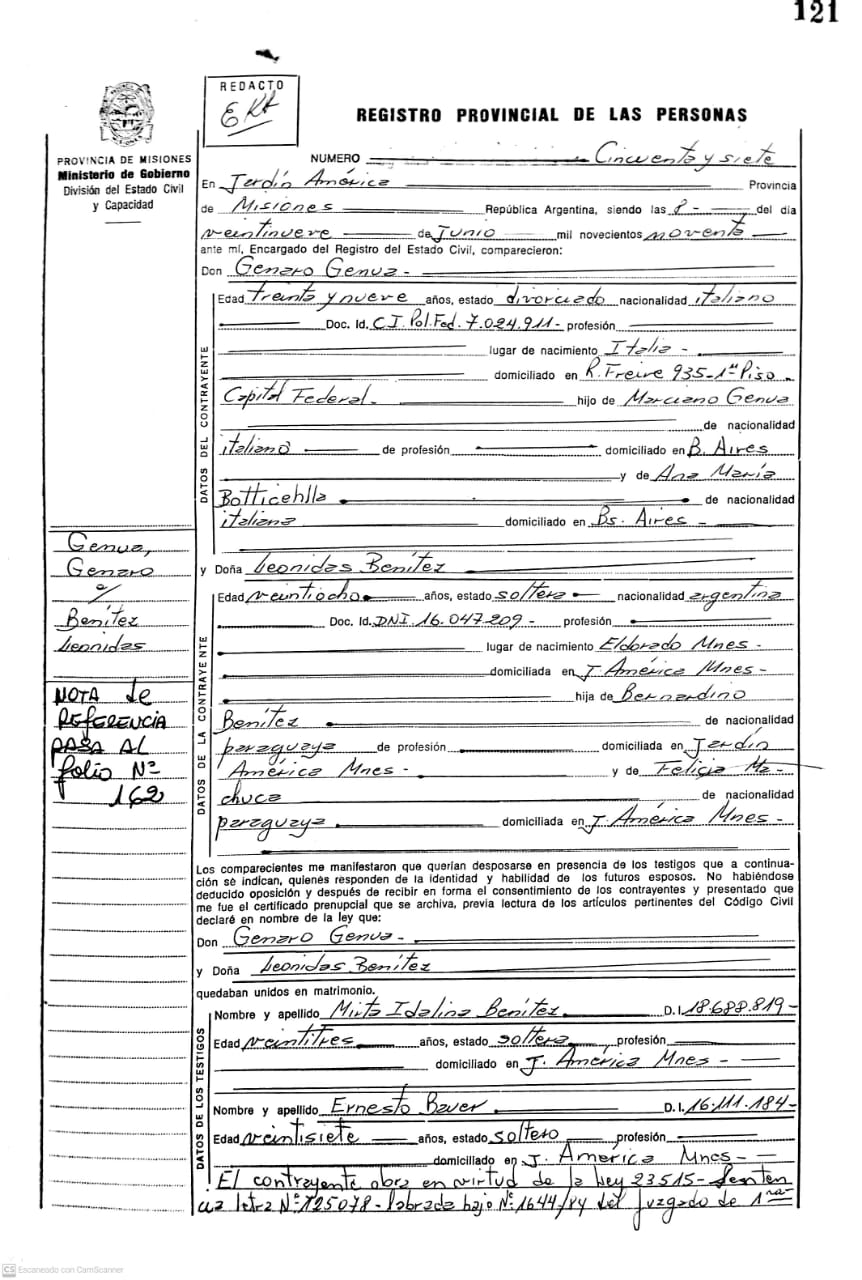 121
REDACTO
REGISTRO PROVINCIAL DE LAS PERSONAS
PROVINCIA DE MISIONES
Ministerio de Gobierno
División del Estado Civil
y Capacidad
NUMERO Cincuenta y siete
En Jardín América Provincia
de Misiones República Argentina, siendo las 8 - del día
veintinueve de Junio mil novecientos noventa
ante mí, Encargado del Registro del Estado Civil, comparecieron:
Don Genaro Genua -
DATOS DEL CONTRAYENTE
Edad treinta y nueve años, estado divorciado nacionalidad italiano
Doc. Id. C.I. Pol. Fed. 7.024.911 - profesión
lugar de nacimiento Italia -
domiciliado en R. Freire 935-1er Piso -
Capital Federal - hijo de Marciano Genua
de nacionalidad
italiano de profesión domiciliado en B. Aires
y de Ana María
Botticehlla de nacionalidad
italiana domiciliado en Bs. Aires -
y Doña Leonidas Benítez
DATOS DE LA CONTRAYENTE
Edad veintiocho años, estado soltera nacionalidad argentina
Doc. Id. DNI. 16.047.209 - profesión
lugar de nacimiento Eldorado Mnes -
domiciliada en J. América Mnes -
hija de Bernardino
Benítez de nacionalidad
paraguaya de profesión domiciliada en Jardín
América Mnes - y de Felicia Ma-
chuca de nacionalidad
paraguaya domiciliada en J. América Mnes -
Genua,
Genaro
c/
Benítez
Leonidas
NOTA de
REFERENCIA
PASA AL
folio Nº
162
Los comparecientes me manifestaron que querían desposarse en presencia de los testigos que a continua-
ción se indican, quienes responden de la identidad y habilidad de los futuros esposos. No habiéndose
deducido oposición y después de recibir en forma el consentimiento de los contrayentes y presentado que
me fue el certificado prenupcial que se archiva, previa lectura de los artículos pertinentes del Código Civil
declaré en nombre de la ley que:
Don Genaro Genua -
y Doña Leonidas Benítez
quedaban unidos en matrimonio.
DATOS DE LOS TESTIGOS
Nombre y apellido Mirta Idalina Benítez D.I. 18.688.819 -
Edad veintitres años, estado soltera profesión
domiciliado en J. América Mnes -
Nombre y apellido Ernesto Bauer D.I. 16.111.184 -
Edad veintisiete años, estado soltero profesión
domiciliado en J. America Mnes -
El contrayente obra en virtud de la ley 23515 - Senten
cia letra Nº 125078 - labrada bajo Nº 1644/84 del juzgado de 1ra
CS Escaneado con CamScanner